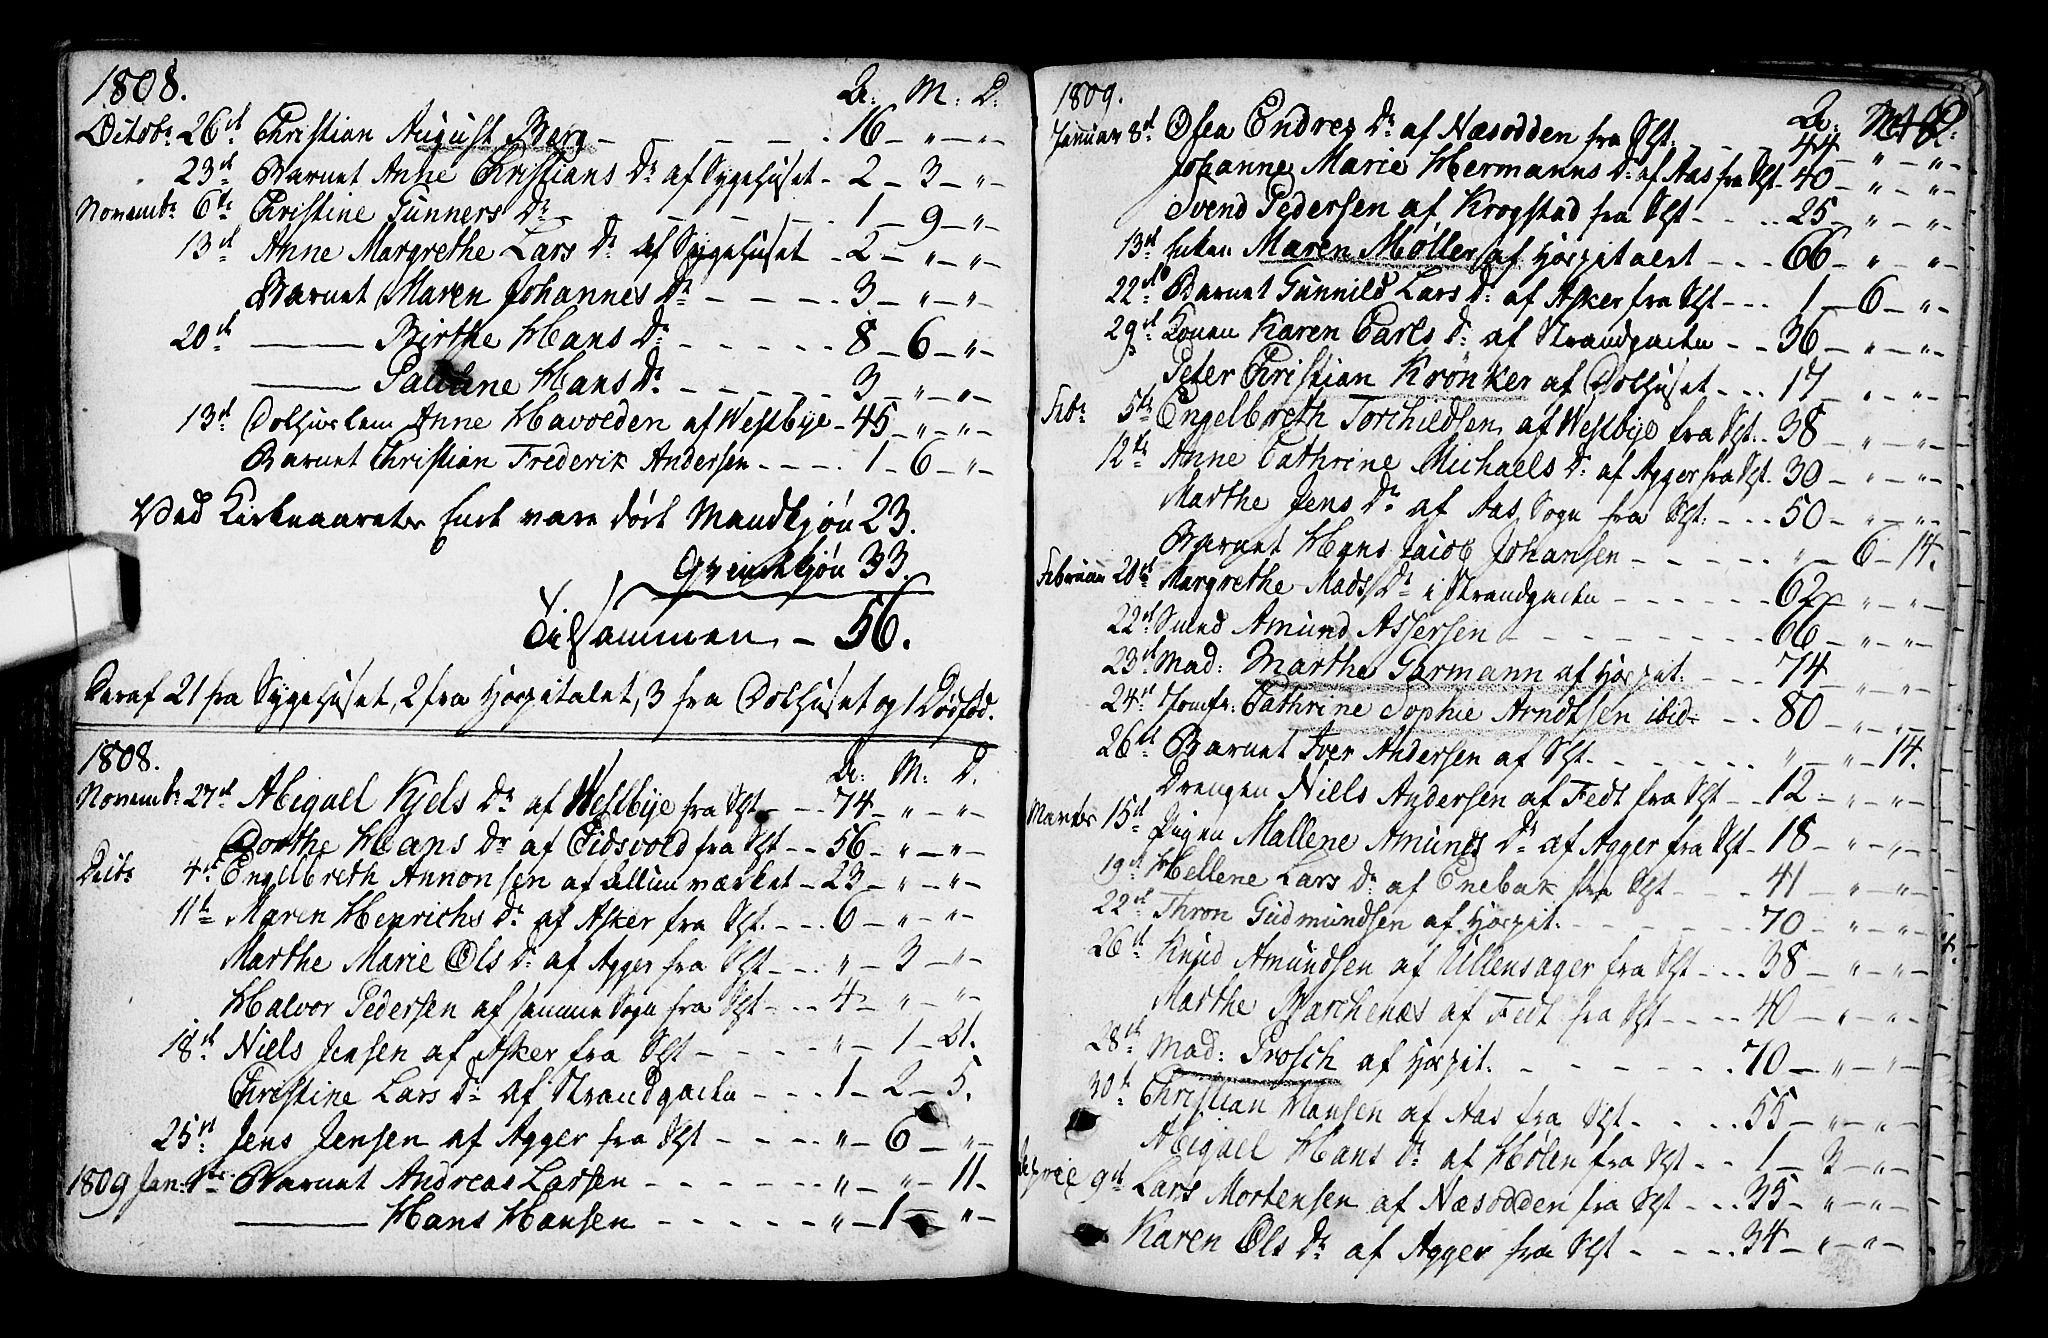 1808. A: M: D:
Octobr 26de Christian August Berg - - - - 16 - " - " -
23de Barnet Anne Christians Dr af Sygehuset - 2 - 3 - " -
Novembr 6te Christine Gunners Dr - - - - 1 - 9 - " -
13de Anne Margrethe Lars Dr af Sygehuset - 2 - " - " -
Barnet Maren Johannes Dr - - - - 3 - " - " -
20de ——— Birthe Hans Dr - - - - - 8 - 6 - " -
——— Pauline Hans Dr - - - - - 3 - " - " -
13de Dolhuslem Anne Havolden af Westbye - 45 - " - " -
Barnet Christian Frederik Andersen - - - - 1 - 6 - " -
Ved Kirkeaarets Ende vare død Mandkjøn 23.
Qvindekjøn 33.
Tilsammen - 56.
Deraf 21 fra Sygehuset, 2 fra Hospitalet, 3 fra Dolhuset og 1 Dødfød.
1808. A: M: D.
Novembr 27de Abigael Kjels Dr af Westbye fra Sgt - - 74 - " - " -
Dorthe Hans Dr af Eidsvold fra Sgt - - 56 - " - " -
Decbr 4de Engelbreth Annonsen af Allunværket - 23 - " - " -
11te Maren Henrichs Dr af Asker fra Sgt. - - - 6 - " - " -
Marthe Marie Ols Dr af Agger fra Sgt - - - " - 3 - " -
Halvor Pedersen af samme Sogn fra Sgt - - - 4 - " - " -
18de Niels Jensen af Asker fra Sgt - - - - " - 1 - 21.
Christine Lars Dr af Strandgaden - - - 1 - 2 - 5.
25de Jens Jensen af Agger fra Sgt - - - - " - 6 - " -
1809 Jan: 1ste Barnet Andreas Larsen - - - - - - " - " - 11.
——— Hans Hansen - - - - - - " - 1 - " -
1809. A: M: D:
Januar 8de Osea Endres Dr af Næsodden fra Sgt. - - - 44 - " - " -
Johanne Marie Hermanns Dr af Aas fra Sgt - 40 - " - " -
Svend Pedersen af Krogstad fra Sgt - - - - 25 - " - " -
13de Enken Maren Møller af Hospitalet - - - 66 - " - " -
22de Barnet Gunnild Lars Dr af Asker fra Sgt - - - 1 - 6 - " -
29de Konen Karen Carls Dr af Strandgaden - - 36 - " - " -
Peter Christian Krönker af Dolhuset - - - 17 - " - " -
Febr 5te Engelbreth Torchildsen af Westbye fra Sgt. - 38 - " - " -
12te Anne Cathrine Michaels Dr af Agger fra Sgt. 30 - " - " -
Marthe Jens Dr af Aas Sogn fra Sgt: - - - 50 - " - " -
Barnet Hans Jacob Johansen - - - - - " - 6 - 14.
Februar 20de Margrethe Mads Dr i Strandgaden - - - - - - 62 - " - " -
22de Smed Amund Assersen - - - - - - - 66 - " - " -
23de Mad: Marthe Garmann af Hospit. - - - 74 - " - " -
24de Jomfr: Cathrine Sophie Arndtsen ibid - - - 80 - " - " -
26de Barnet Iver Andersen af Sgt. - - - - - - " - " - 14.
Drengen Niels Andersen af Fedt fra Sgt - - 12 - " - " -
Martz 15de Pigen Mallene Amunds Dr af Agger fra Sgt - 18 - " - " -
19de Hellene Lars Dr af Enebak fra Sgt - - - 41 - " - " -
22de Thron Gudmundsen af Hospit. - - - - - - 70 - " - " -
26de Knud Amundsen af Ullensager fra Sgt - - - 38 - " - " -
Marthe Marchenæs af Fedt fra Sgt - - - - 40 - " - " -
28de Mad: Prosch af Hospit. - - - - - - 70 - " - " -
30te Christian Hansen af Aas fra Sgt - - - - 55 - " - " -
Abigael Hans Dr af Hølen fra Sgt - - 1 - 3 - " -
Aprel 9de Lars Mortensen af Næsodden fra Sgt - - - 35 - " - " -
Karen Ols Dr af Agger fra Sgt - - - - 34 - " - " -